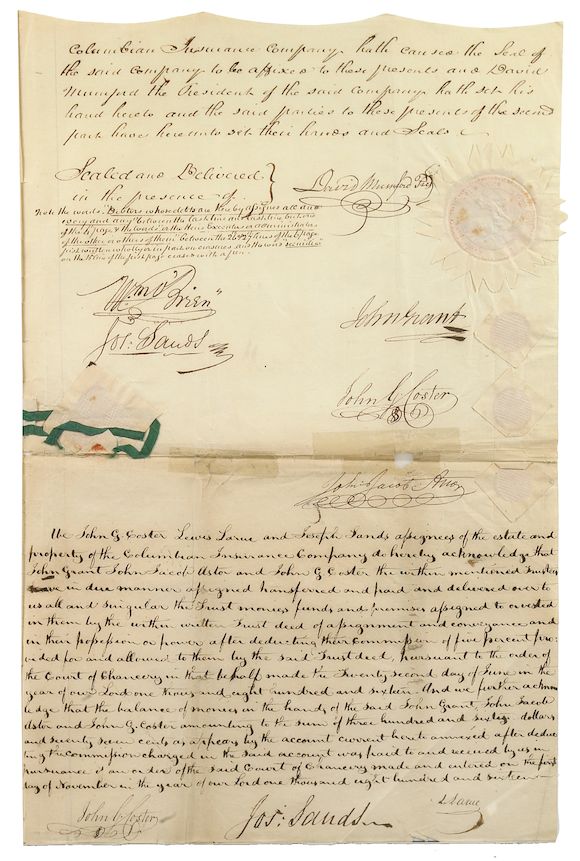 Columbian Insurance Company hath caused the Seal of
the said Company to be affixed to these presents and David
Mumford the President of the said Company hath set his
hand hereto and the said parties to these presents of the second
part have hereunto set their hands and Seals
Sealed and Delivered
in the presence of
David Mumford Pres
Note the words
of the other or others of them between the
on the of the first page erased with a pen.
Wm O'Brien
Jos: Sands
John Grant
John G Coster
John Jacob Astor
We John G. Coster Lewis Larue and Joseph Sands assignees of the estate and
property of the Columbian Insurance Company do hereby acknowledge that
John Grant John Jacob Astor and John G Coster the within mentioned Trustees
have in due manner assigned transferred and paid and delivered over to
us all and singular the Trust monies funds and premises assigned to or vested
in them by the within written Trust deed of assignment and conveyance and
in their possession or power after deducting their Commission of five percent pro-
vided for and allowed to them by the said Trust deed, pursuant to the order of
the Court of Chancery in that behalf made the Twenty second day of June in the
year of our Lord one thousand eight hundred and sixteen. And we further acknow
ledge that the balance of monies in the hands of the said John Grant, John Jacob
Astor and John G. Coster amounting to the sum of three hundred and sixty dollars
and seventy seven cents as appears by the account current hereto annexed after deduc
ting the commission charged in the said account was paid to and received by us in
pursuance of an order of the said Court of Chancery made and entered on the first
day of November in the year of our Lord one thousand eight hundred and sixteen
John G. Coster
Jos: Sands
L Larue